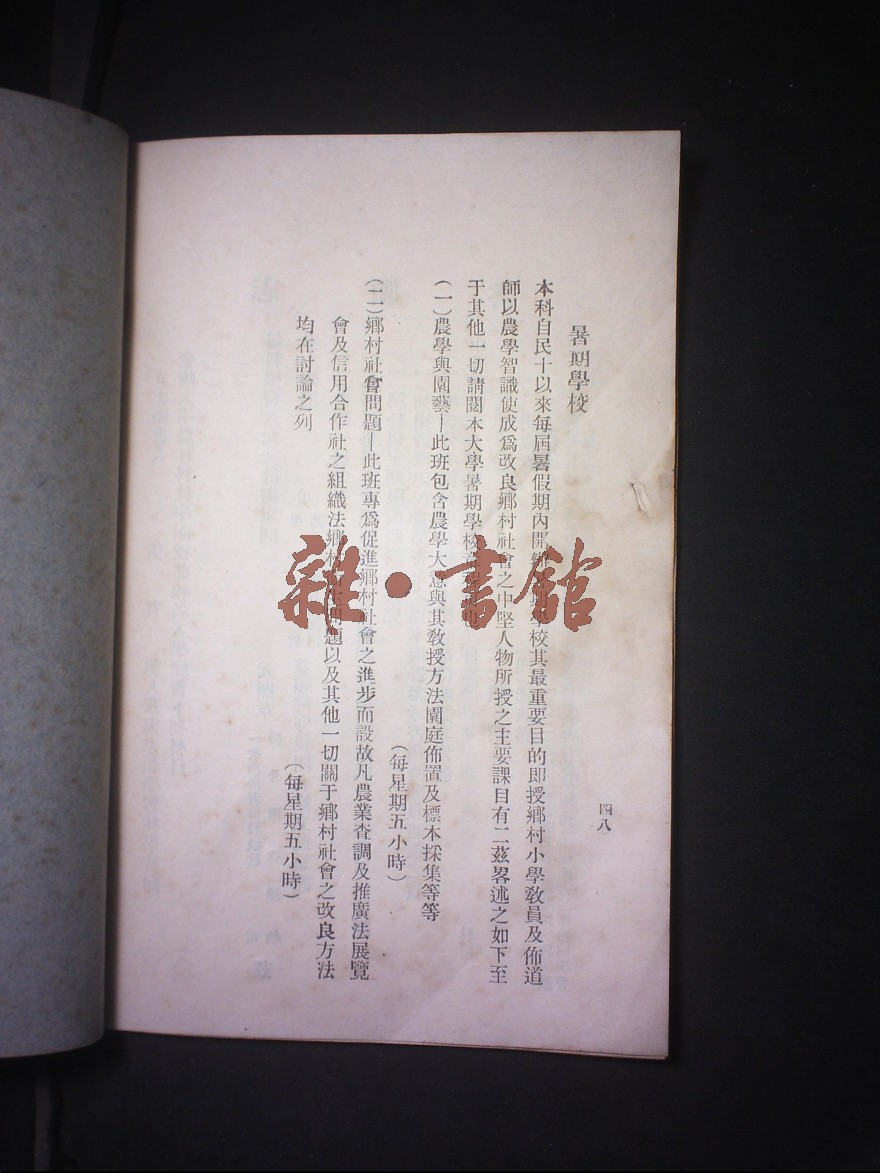 暑期學校
本科自民十以來每屆暑假期內開辦暑期學校其最重要目的即授鄉村小學敎員及佈道
師以農學智識使成爲改良鄉村社會之中堅人物所授之主要課目有二茲畧述之如下至
于其他一切請閱本大學暑期學校
(一)農學與園藝—此班包含農學大意與其敎授方法園庭佈置及標本採集等等
(每星期五小時)
(二)鄉村社會問題—此班專爲促進鄉村社會之進步而設故凡農業查調及推廣法展覽
會及信用合作社之組織法鄉村問題以及其他一切關于鄉村社會之改良方法
均在討論之列
(每星期五小時)
四八
雜·書館